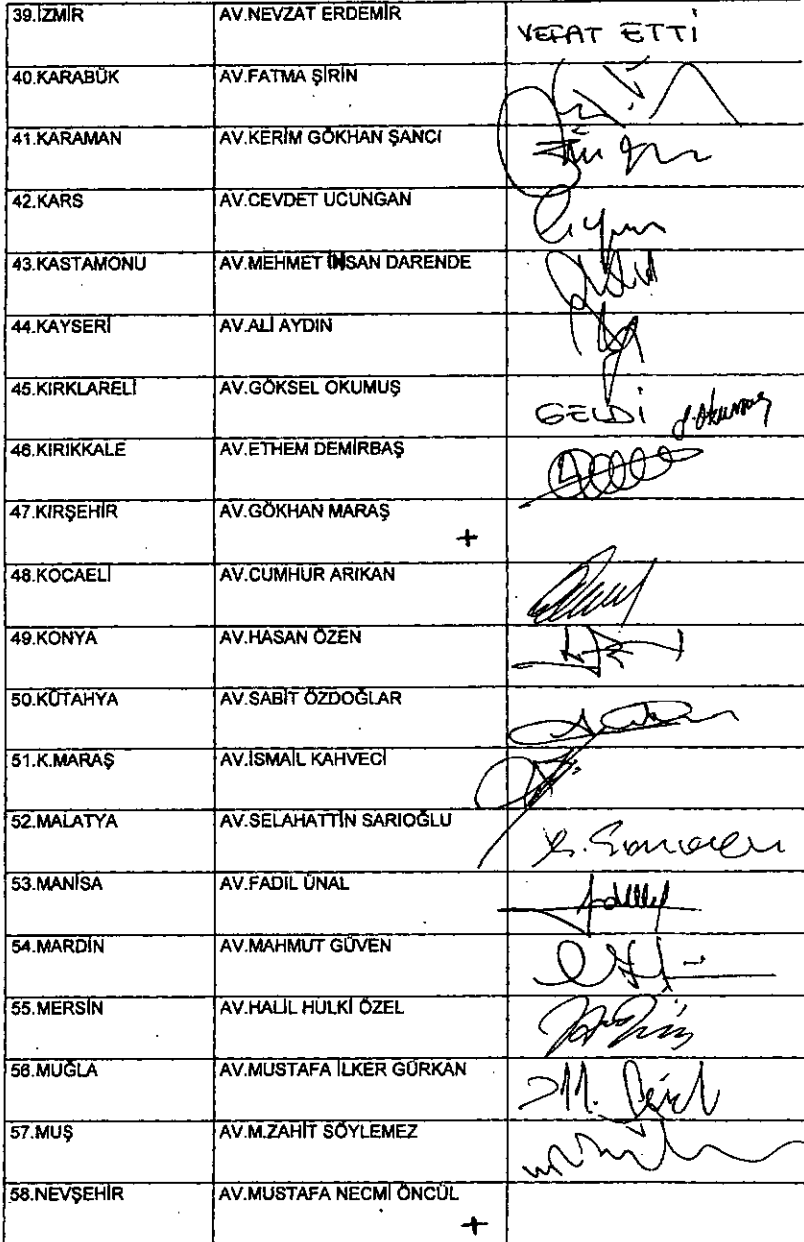 39.İZMİR AV.NEVZAT ERDEMİR VEFAT ETTİ
40.KARABÜK AV.FATMA ŞİRİN
41.KARAMAN AV.KERİM GÖKHAN ŞANCI
42.KARS AV.CEVDET UCUNGAN
43.KASTAMONU AV.MEHMET İHSAN DARENDE
44.KAYSERİ AV.ALİ AYDIN
45.KIRKLARELİ AV.GÖKSEL OKUMUŞ GELDİ
46.KIRIKKALE AV.ETHEM DEMİRBAŞ
47.KIRŞEHİR AV.GÖKHAN MARAŞ +
48.KOCAELİ AV.CUMHUR ARIKAN
49.KONYA AV.HASAN ÖZEN
50.KÜTAHYA AV.SABİT ÖZDOĞLAR
51.K.MARAŞ AV.İSMAİL KAHVECİ
52.MALATYA AV.SELAHATTİN SARIOĞLU
53.MANİSA AV.FADIL ÜNAL
54.MARDİN AV.MAHMUT GÜVEN
55.MERSİN AV.HALİL HULKİ ÖZEL
56.MUĞLA AV.MUSTAFA İLKER GÜRKAN
57.MUŞ AV.M.ZAHİT SÖYLEMEZ
58.NEVŞEHİR AV.MUSTAFA NECMİ ÖNCÜL +